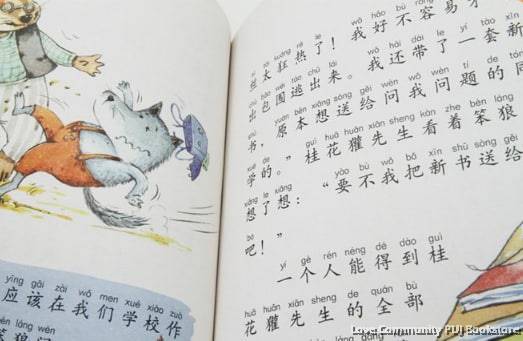 yīng gāi zài wǒ men xué xiào zuò
应该在我们学校作
tài kuáng rè le wǒ hǎo bù róng yì
丝太狂热了！我好不容易
chū bāo wéi táo chū lái wǒ hái dài le yí tào xīn
出包围逃出来。我还带了一套新
shū yuán běn xiǎng sòng gěi wèn wǒ wèn tí de tóng
书，原本想送给问我问题的同
xué de guì huā huān xiān sheng kàn zhe bèn láng
学的。”桂花獾先生看着笨狼
xiǎng le xiǎng yào bù wǒ bǎ xīn shū sòng gěi
想了想：“要不我把新书送给
ba
吧！”
yí gè rén néng dé dào guì
一个人能得到桂
huā huān xiān sheng de quán bù
花獾先生的全部
Love Community PUJ Bookstore